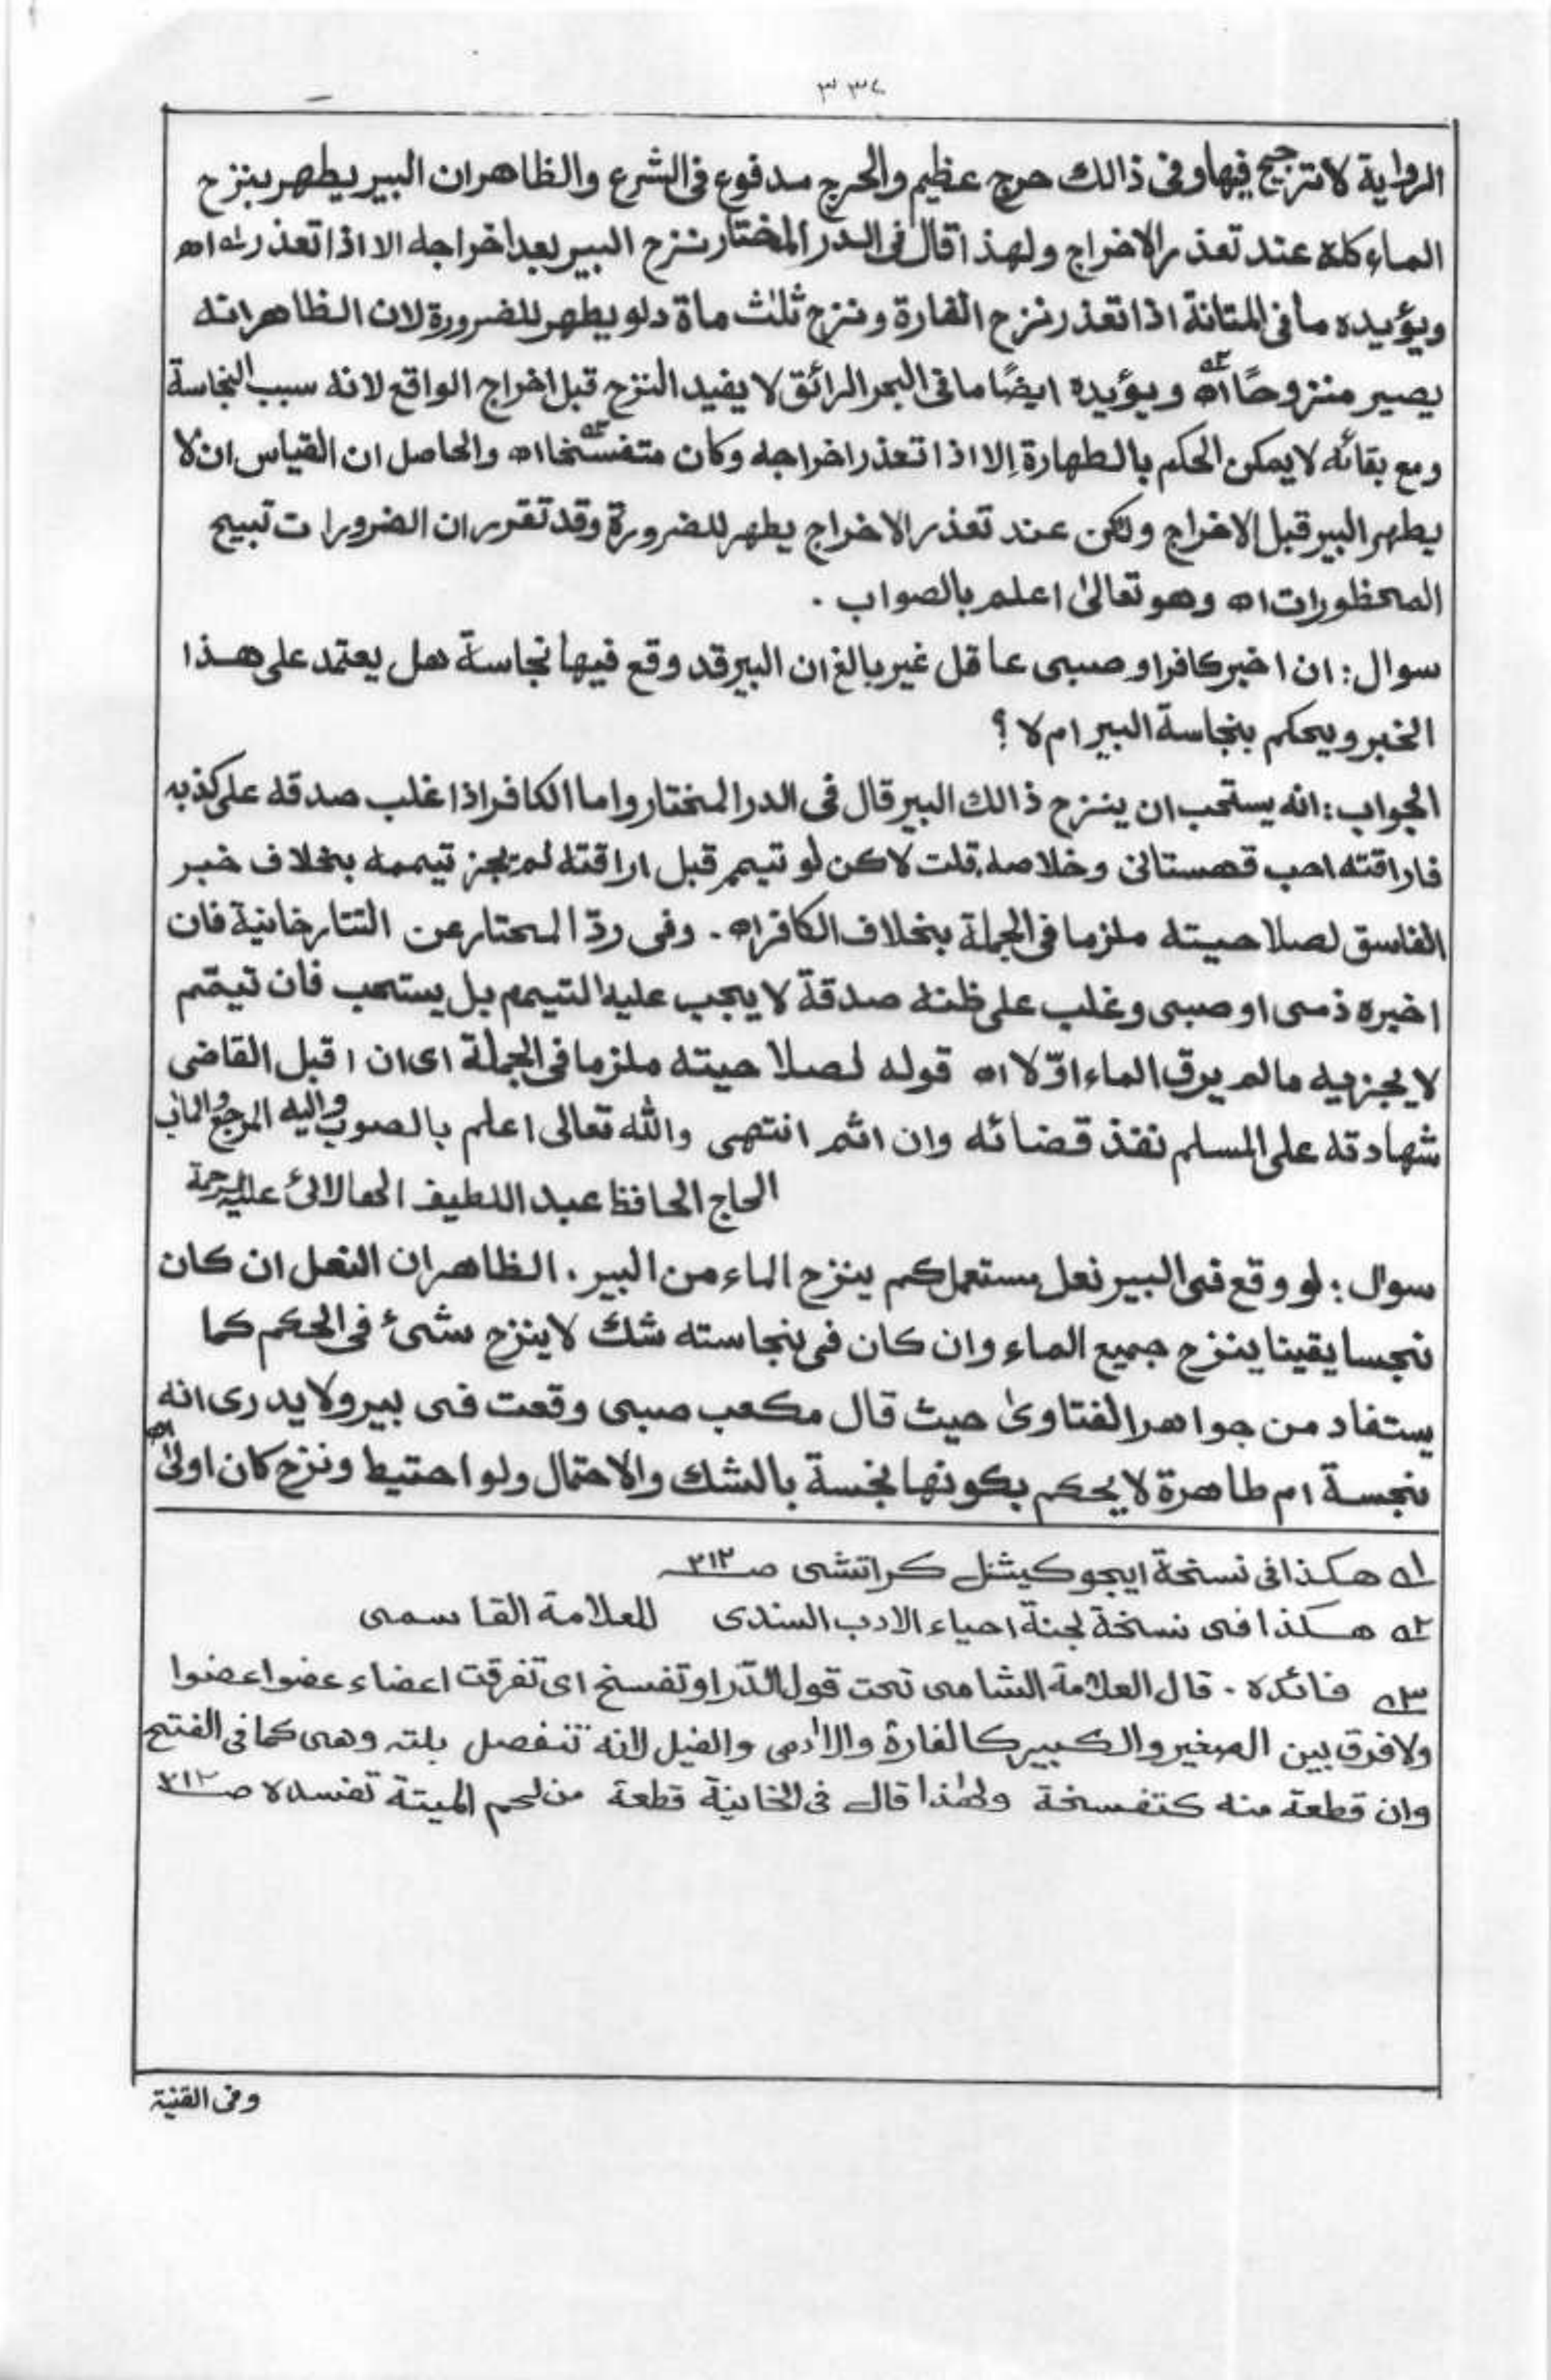 ٣٣٤
الرواية لا ترجيح فيها وفى ذالك حرج عظيم والحرج مدفوع فى الشرع والظاهر ان البير يطهر بنزح
الماء كله عند تعذر الاخراج ولهذا قال فى الدر المختار ننزح البير بعد اخراجه الا اذا تعذر اه
ويؤيده ما فى المتانة اذا تعذر نزح الفارة ونزح ثلث ماة دلو يطهر للضرورة لان الظاهر انه
يصير منزوحًا اه ويؤيده ايضًا ما فى البحر الرائق لا يفيد النزح قبل اخراج الواقع لانه سبب النجاسة
ومع بقائه لا يمكن الحكم بالطهارة إلا اذا تعذر اخراجه وكان متفسخا اه والحاصل ان القياس ان لا
يطهر البير قبل الاخراج ولكن عند تعذر الاخراج يطهر للضرورة وقد تقرر ان الضرورات تبيح
المحظورات اه وهو تعالىٰ اعلم بالصواب .
سوال : ان اخبر كافر او صبى عاقل غير بالغ ان البير قد وقع فيها نجاسة هل يعتمد على هذا
الخبر ويحكم بنجاسة البير ام لا ؟
الجواب : انه يستحب ان ينزح ذالك البير قال فى الدر المختار واما الكافر اذا غلب صدقه على كذبه
فاراقته احب قهستانى وخلاصه قلت لاكن لو تيمم قبل اراقته لم يجز تيممه بخلاف خبر
الفاسق لصلاحيته ملزما فى الجملة بخلاف الكافر اه . وفى ردّ المحتار عن التتارخانية فان
اخبره ذمى او صبى وغلب على ظنه صدقة لا يجب عليه التيمم بل يستحب فان تيمّم
لا يجزيه مالم يرق الماء اوّلا اه قوله لصلاحيته ملزما فى الجملة اى ان اقبل القاضى
شهادته على المسلم نفذ قضائه وان اثم انتهى والله تعالى اعلم بالصوب واليه المرجع والماب
الحاج الحافظ عبد اللطيف الهالائى عليه الرحمة
سوال : لو وقع فى البير نعل مستعمل كم ينزح الماء من البير . الظاهر ان النعل ان كان
نجسا يقينا ينزح جميع الماء وان كان فى نجاسته شك لا ينزح شئ فى الحكم كما
يستفاد من جواهر الفتاوىٰ حيث قال مكعب صبى وقعت فى بير ولا يدرى انه
نجسة ام طاهرة لا يحكم بكونها نجسة بالشك والاحتمال ولو احتيط ونزح كان اولىٰ اه
١ه هكذا فى نسخة ايجوكيشنل كراتشى صـ٣١٢
٢ه هكذا فى نسخة لجنة احياء الادب السندى للعلامة القاسمى
٣ه فائده . قال العلامة الشامى تحت قول الدّر او تفسخ اى تفرقت اعضاء عضوا عضوا
ولا فرق بين الصغير والكبير كالفارة والادمى والفيل لانه تنفصل بلته وهى كما فى الفتح
وان قطعة منه كتفسخة ولهٰذا قال فى الخانية قطعة من لحم الميتة تفسده صـ٣١٢
وفى القنية